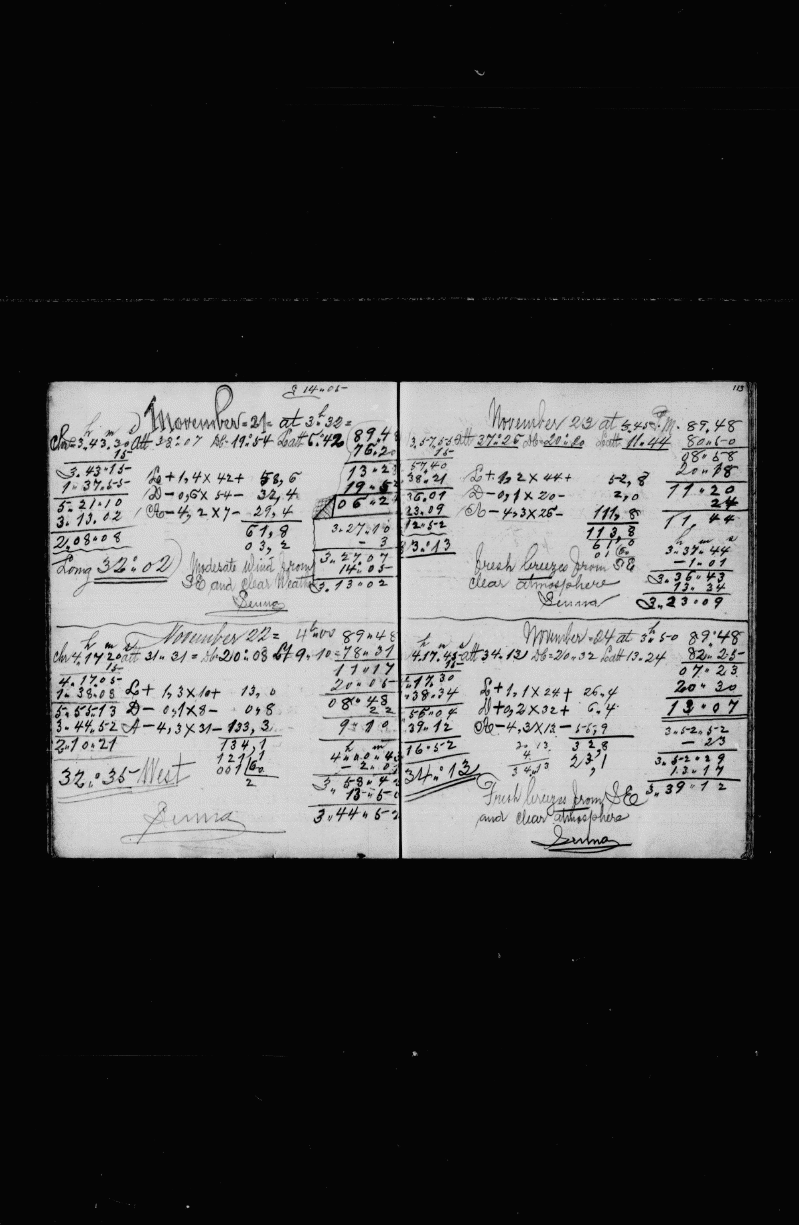 3 14" 05
November = 21 = at 3h 32 =
89.48
h m s
Chr = 3.43.30 att 38:07 Db - 19:54 Latt 6.42
76.20
15
3.43.15
13.2
1.37.55
L + 1,4 X 42 + 58,6
19.5
5.21.10
D - 0,6 X 54 - 32,4
06.2
3.13.02
A - 4,2 X 7 - 29,4
2.08.08
61,8
3.27.10
03,2
- 3
Long 32:02
3.27.07
Moderate wind from
14.05
SE and clear Weather
3.13.02
Senna
November 22 =
4h"00
89"48
h m s
Chr 4.17 20 att 31"31 = Db = 20:08 Lt 9"10 = 78"31
15
11"17
4.17.05
20"05
1"38.08
L + 1,3 X 10 + 13,0
08"48
5"55.13
D - 0,1 X 8 - 0,8
22
3"44.52
A - 4,3 X 31 - 133,3
9"10
2"10"21
134,1
h m
121|1
32:35 West
001|60
2
3"58"4
13"50
3"44"52
Senna
113
November 23 at 3,45 P.M. 89.48
3.57.55 att 37:26 Db = 20:20 Latt 11.44
80"50
15
08"58
57.40
20"18
38"21
L + 1,2 X 44 + 52,8
11"20
36.01
D - 0,1 X 20 - 2,0
24
23.09
A - 4,3 X 26 - 111,8
11,44
12"52
113,8
h m s
61,0
3"37"44
33:13
- 1"01
Fresh breezes from SE
3"36"43
clear atmosphere
13"34
Senna
3"23"09
November = 24 at 3h 50 89:48
h m s
4.17.45 att 34.13 Db = 20"32 Latt 13.24
82"25
15
07"23
17.30
20"30
38"34
L + 1,1 X 24 + 26.4
13"07
56"04
D + 0,2 X 32 + 6.4
39"12
A - 4,3 X 13 - 55,9
3"52"52
16"52
2"13
32,8
- 23
4
23,1
3"52"29
34:13
34,13
13"17
3"39"12
Fresh breezes from SE
and clear atmosphere
Senna